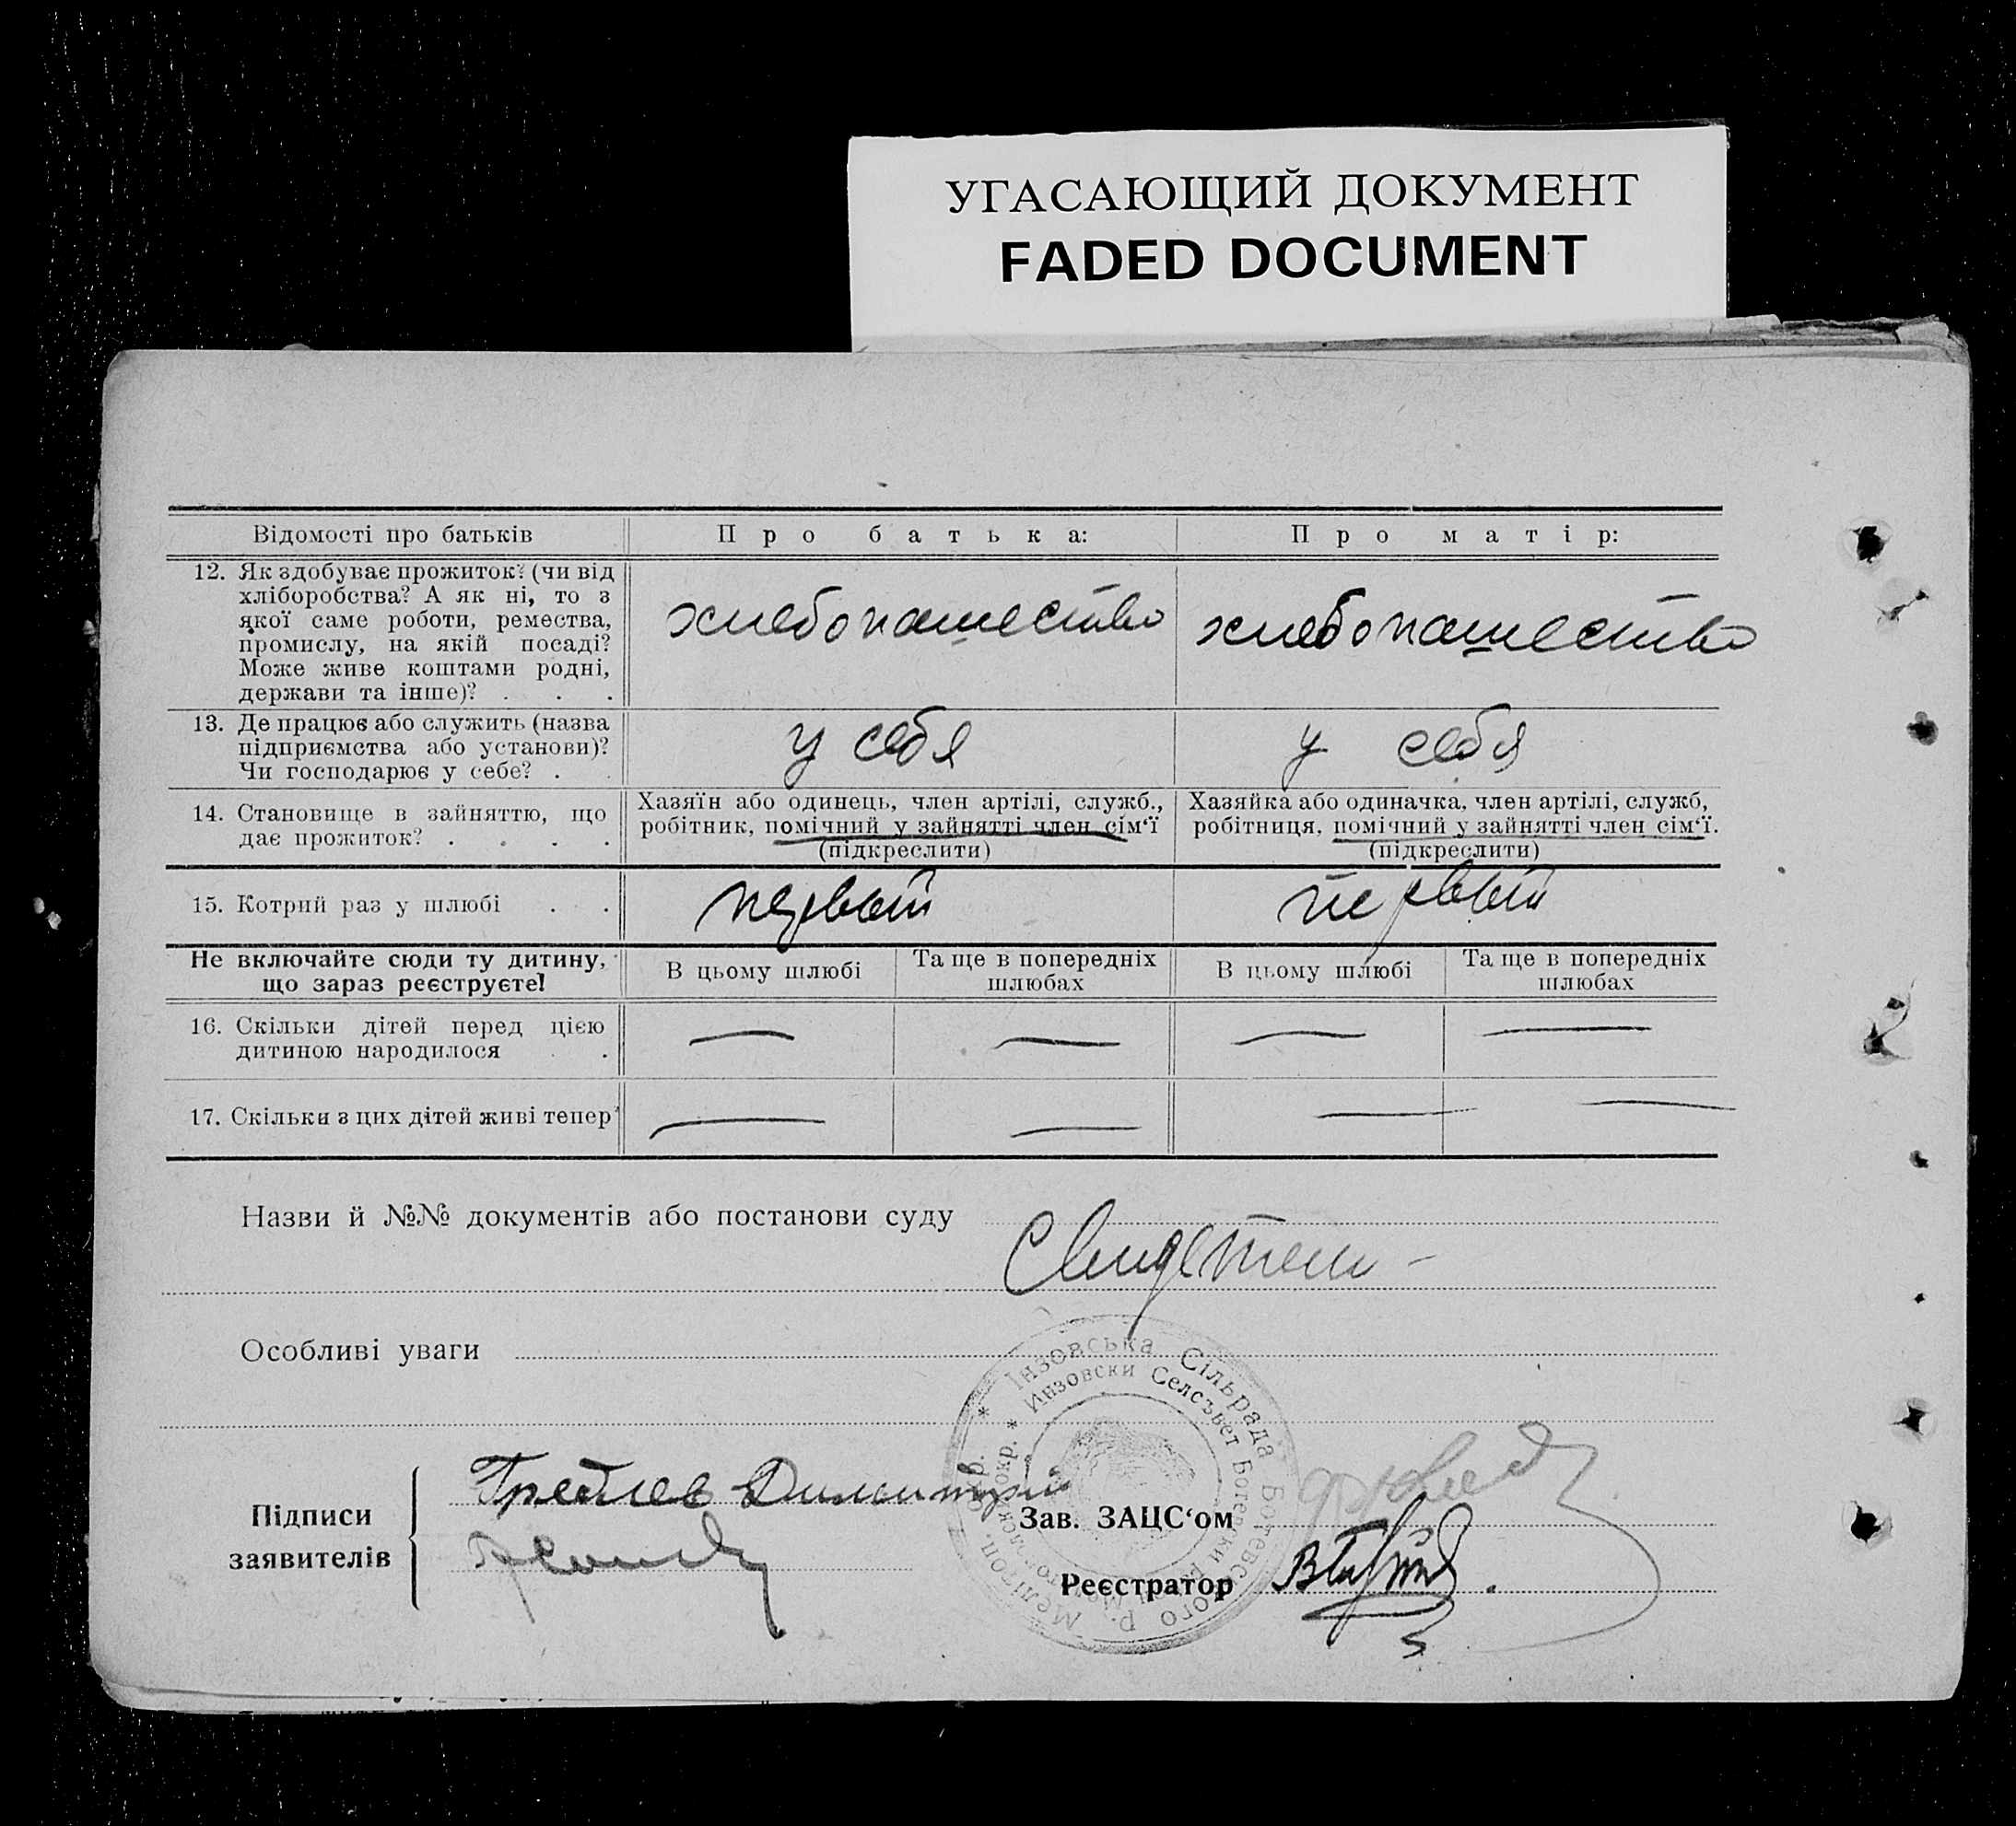 УГАСАЮЩИЙ ДОКУМЕНТ
FADED DOCUMENT
Відомості про батьків
Про батька:
Про матір:
12. Як здобуває прожиток? (чи від
хліборобства? А як ні, то з
якої саме роботи, ремества,
промислу, на якій посаді?
Може живе коштами родні,
держави та інше)? . . .
хлебопашество
хлебопашество
13. Де працює або служить (назва
підприємства або установи)?
Чи господарює у себе? . .
у себя
у себя
14. Становище в зайняттю, що
дає прожиток? . . . .
Хазяїн або одинець, член артілі, служб.,
робітник, помічний у зайнятті член сім‘ї
(підкреслити)
Хазяйка або одиначка, член артілі, служб,
робітниця, помічний у зайнятті член сім‘ї.
(підкреслити)
15. Котрий раз у шлюбі . .
первый
первый
Не включайте сюди ту дитину,
що зараз реєструєте!
В цьому шлюбі
Та ще в попередніх
шлюбах
В цьому шлюбі
Та ще в попередніх
шлюбах
16. Скільки дітей перед цією
дитиною народилося . .
— — — —
17. Скільки з цих дітей живі тепер
— — — —
Назви й №№ документів або постанови суду
Свидетели -
Особливі уваги
Інзовська Сільрада Ботієвського р. Мелітоп. Окр.
Инзовски Селсъвет Ботевски
Підписи
заявителів
Димитрий
Зав. ЗАЦС‘ом
Реєстратор